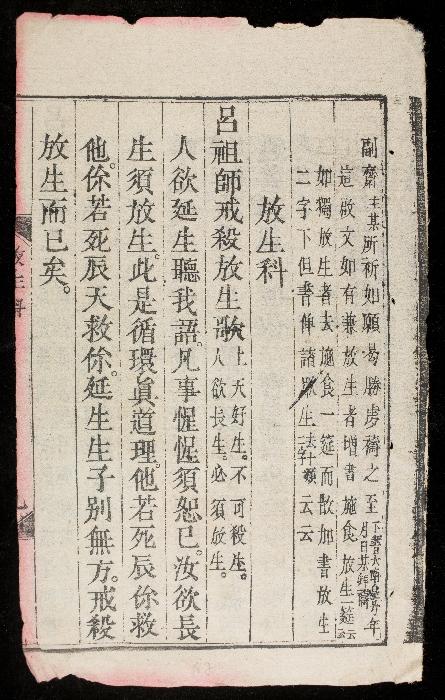 副齋主某所祈如願曷勝虔禱之至下書大
月日某拜
這啟文如有兼放生者增書施食放生筵云云
如獨放生者去施食一筵而散加書放生
二字下但書俾諸眾生去字云云
放生科
呂祖師戒殺放生歌上天好生。不可殺生。
人欲長生。必須放生。
人欲延生聽我語。凡事惺惺須恕已。汝欲長
生須放生。此是循環眞道理。他若死辰你救
他。你若死辰天救你。延生生子別無方。戒殺
放生而已矣。
放生科